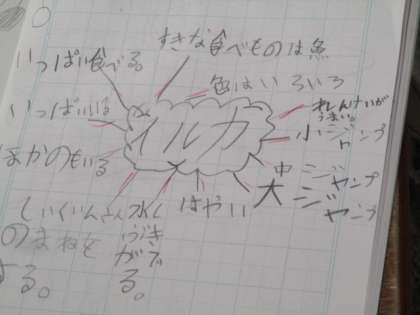 すきな食べものは魚
いっぱい食べる
色はいろいろ
いっぱいいる
れんけいが
うまい。
イルカ
小ジャンプ
ほかのもいる
中ジャンプ
大ジャンプ
はやい
水しぶきがでる。
しいくいんさん
のまねを
する。